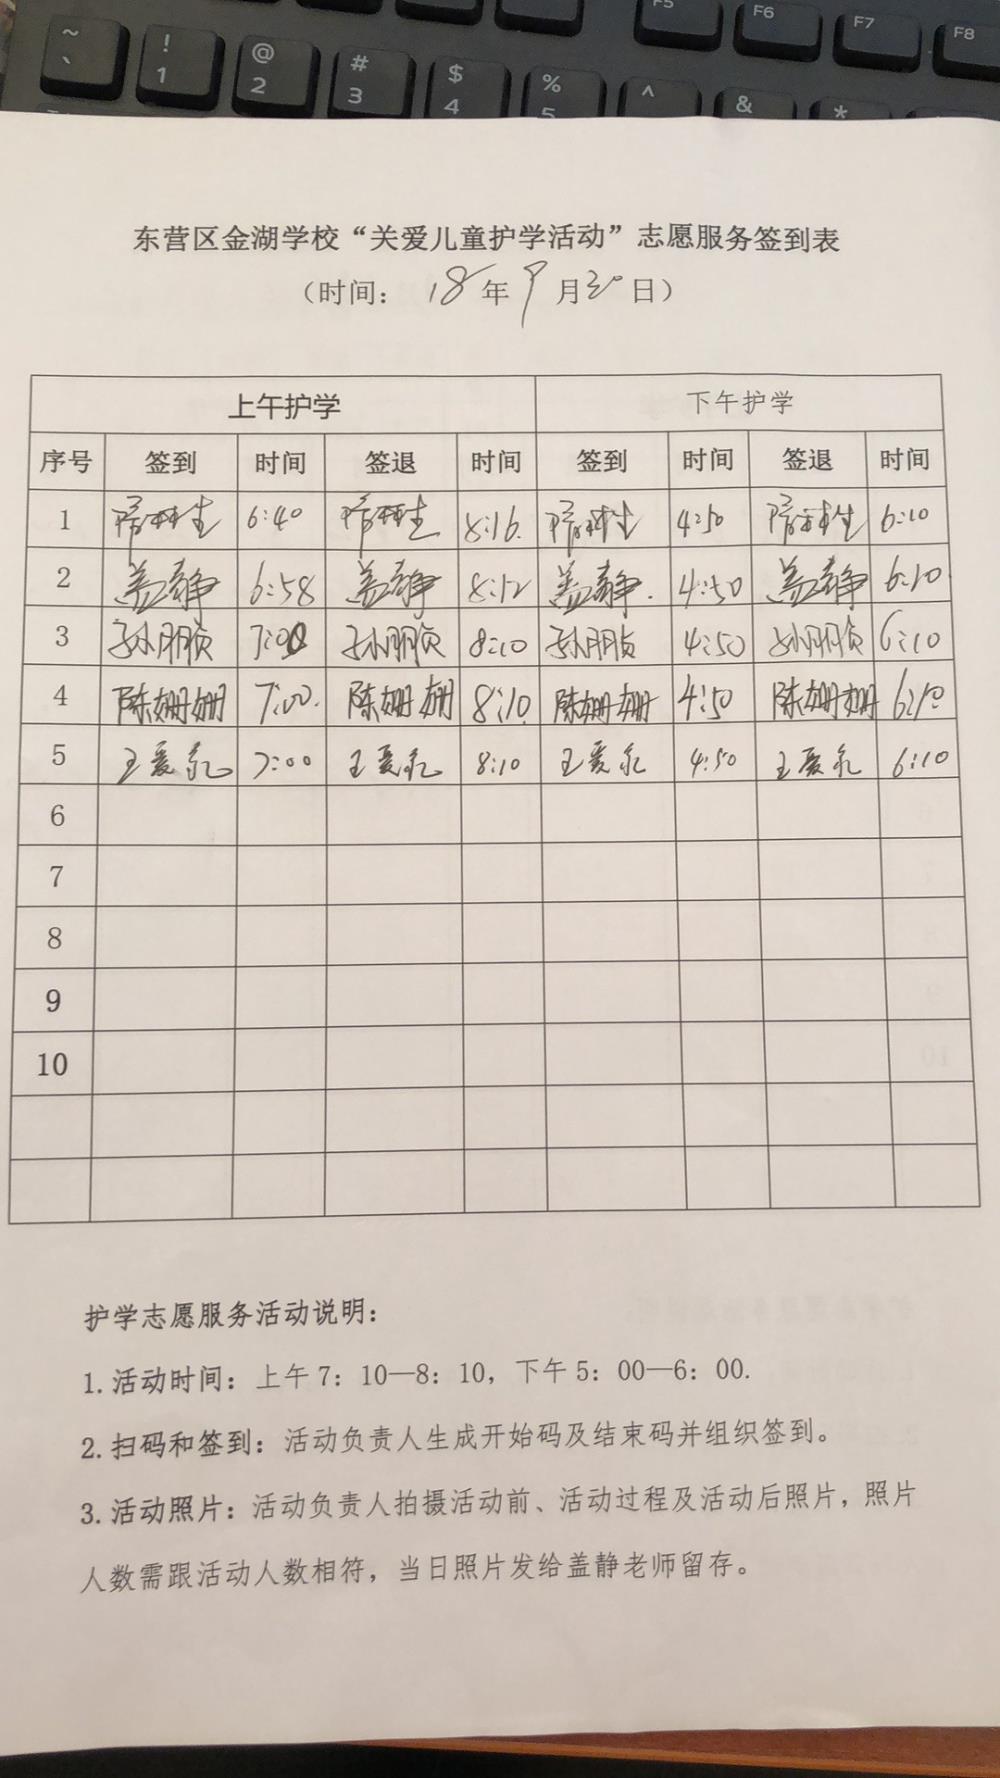 ~
`
!
1
@
2
#
3
$
4
%
5
^
&
*
F5
F6
F7
F8
东营区金湖学校“关爱儿童护学活动”志愿服务签到表
（时间：18年9月30日）
上午护学 下午护学
序号 签到 时间 签退 时间 签到 时间 签退 时间
1 6:40 8:16. 4:50 6:10
2 盖静 6:58 盖静 8:12 盖静. 4:50 盖静 6:10
3 孙朋贞 7:00 孙朋贞 8:10 孙朋贞 4:50 孙朋贞 6:10
4 陈姗姗 7:00. 陈姗姗 8:10 陈姗姗 4:50 陈姗姗 6:10
5 王爱永 7:00 王爱永 8:10 王爱永 4:50 王爱永 6:10
6
7
8
9
10
护学志愿服务活动说明：
1.活动时间：上午7：10—8：10，下午5：00—6：00.
2.扫码和签到：活动负责人生成开始码及结束码并组织签到。
3.活动照片：活动负责人拍摄活动前、活动过程及活动后照片，照片
人数需跟活动人数相符，当日照片发给盖静老师留存。